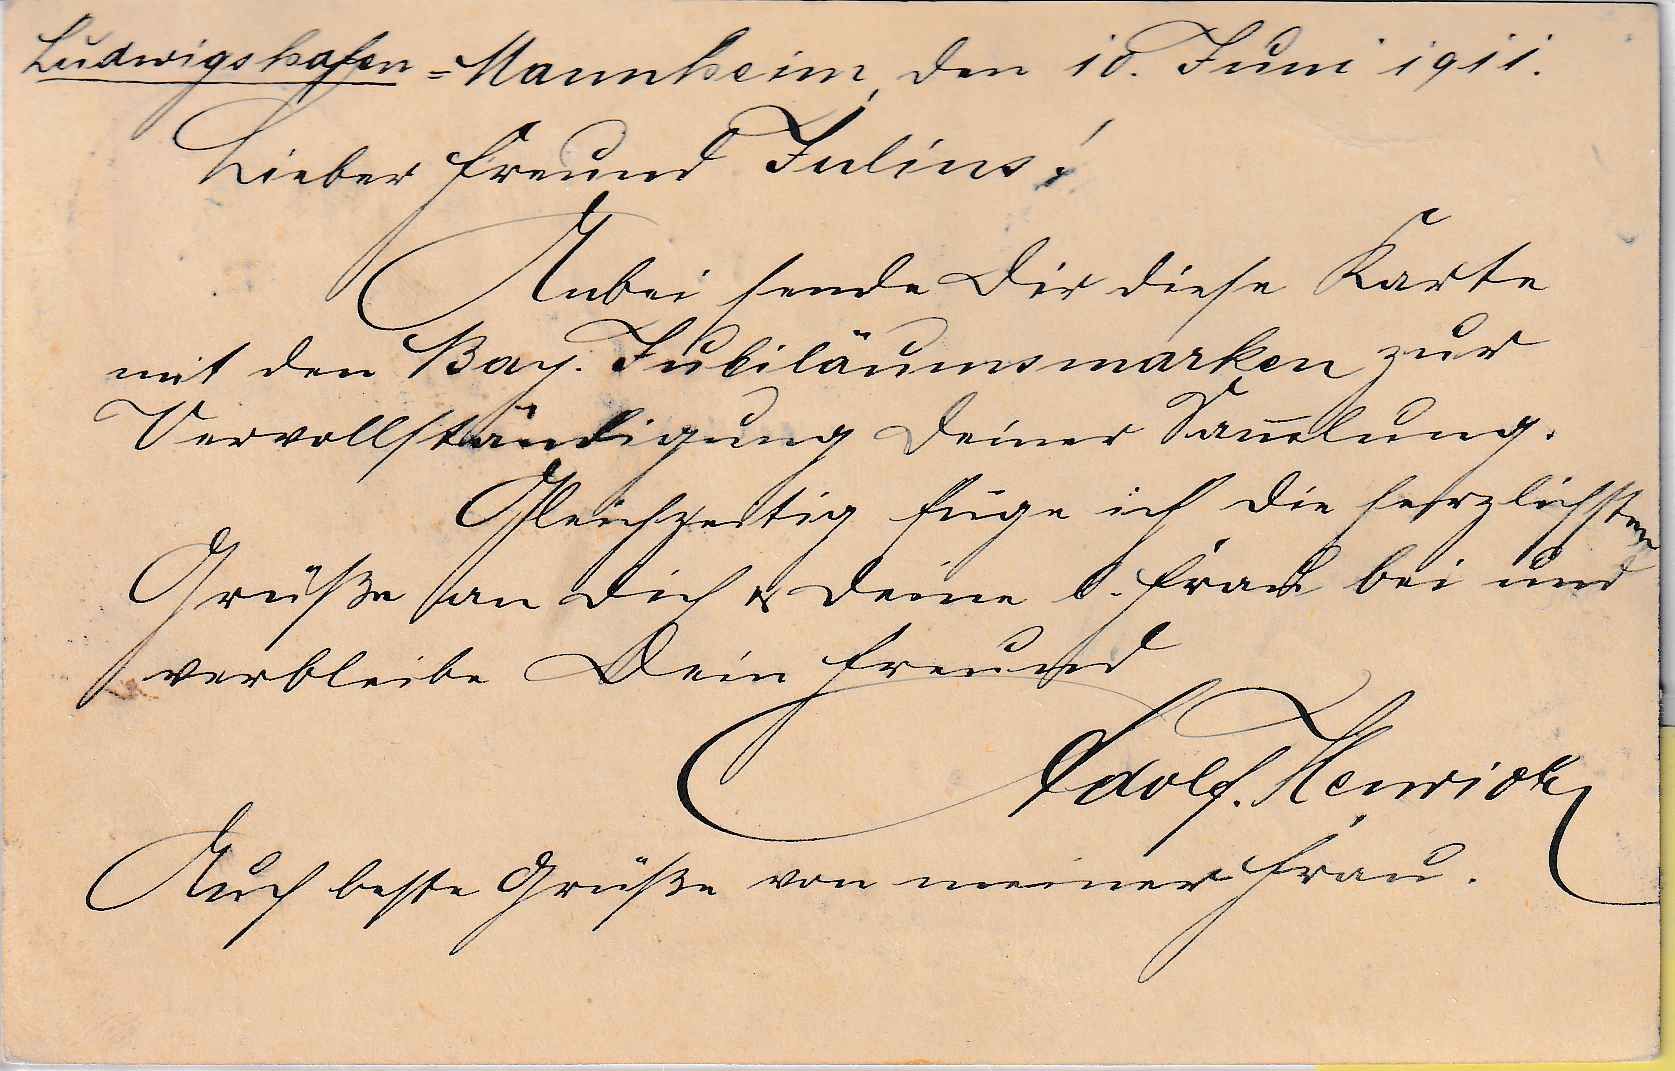 Ludwigshafen=Mannheim, den 10. Juni 1911.
Lieber Freund Julius!
Anbei sende Dir diese Karte
mit den Bay. Jubiläumsmarken zur
Vervollständigung Deiner Sam̅lung.
Gleichzeitig füge ich die herzlichsten
Grüße an Dich & Deine l. Frau bei und
verbleibe Dein Freund
Adolf. Henrich
Auch beste Grüße von meiner Frau.